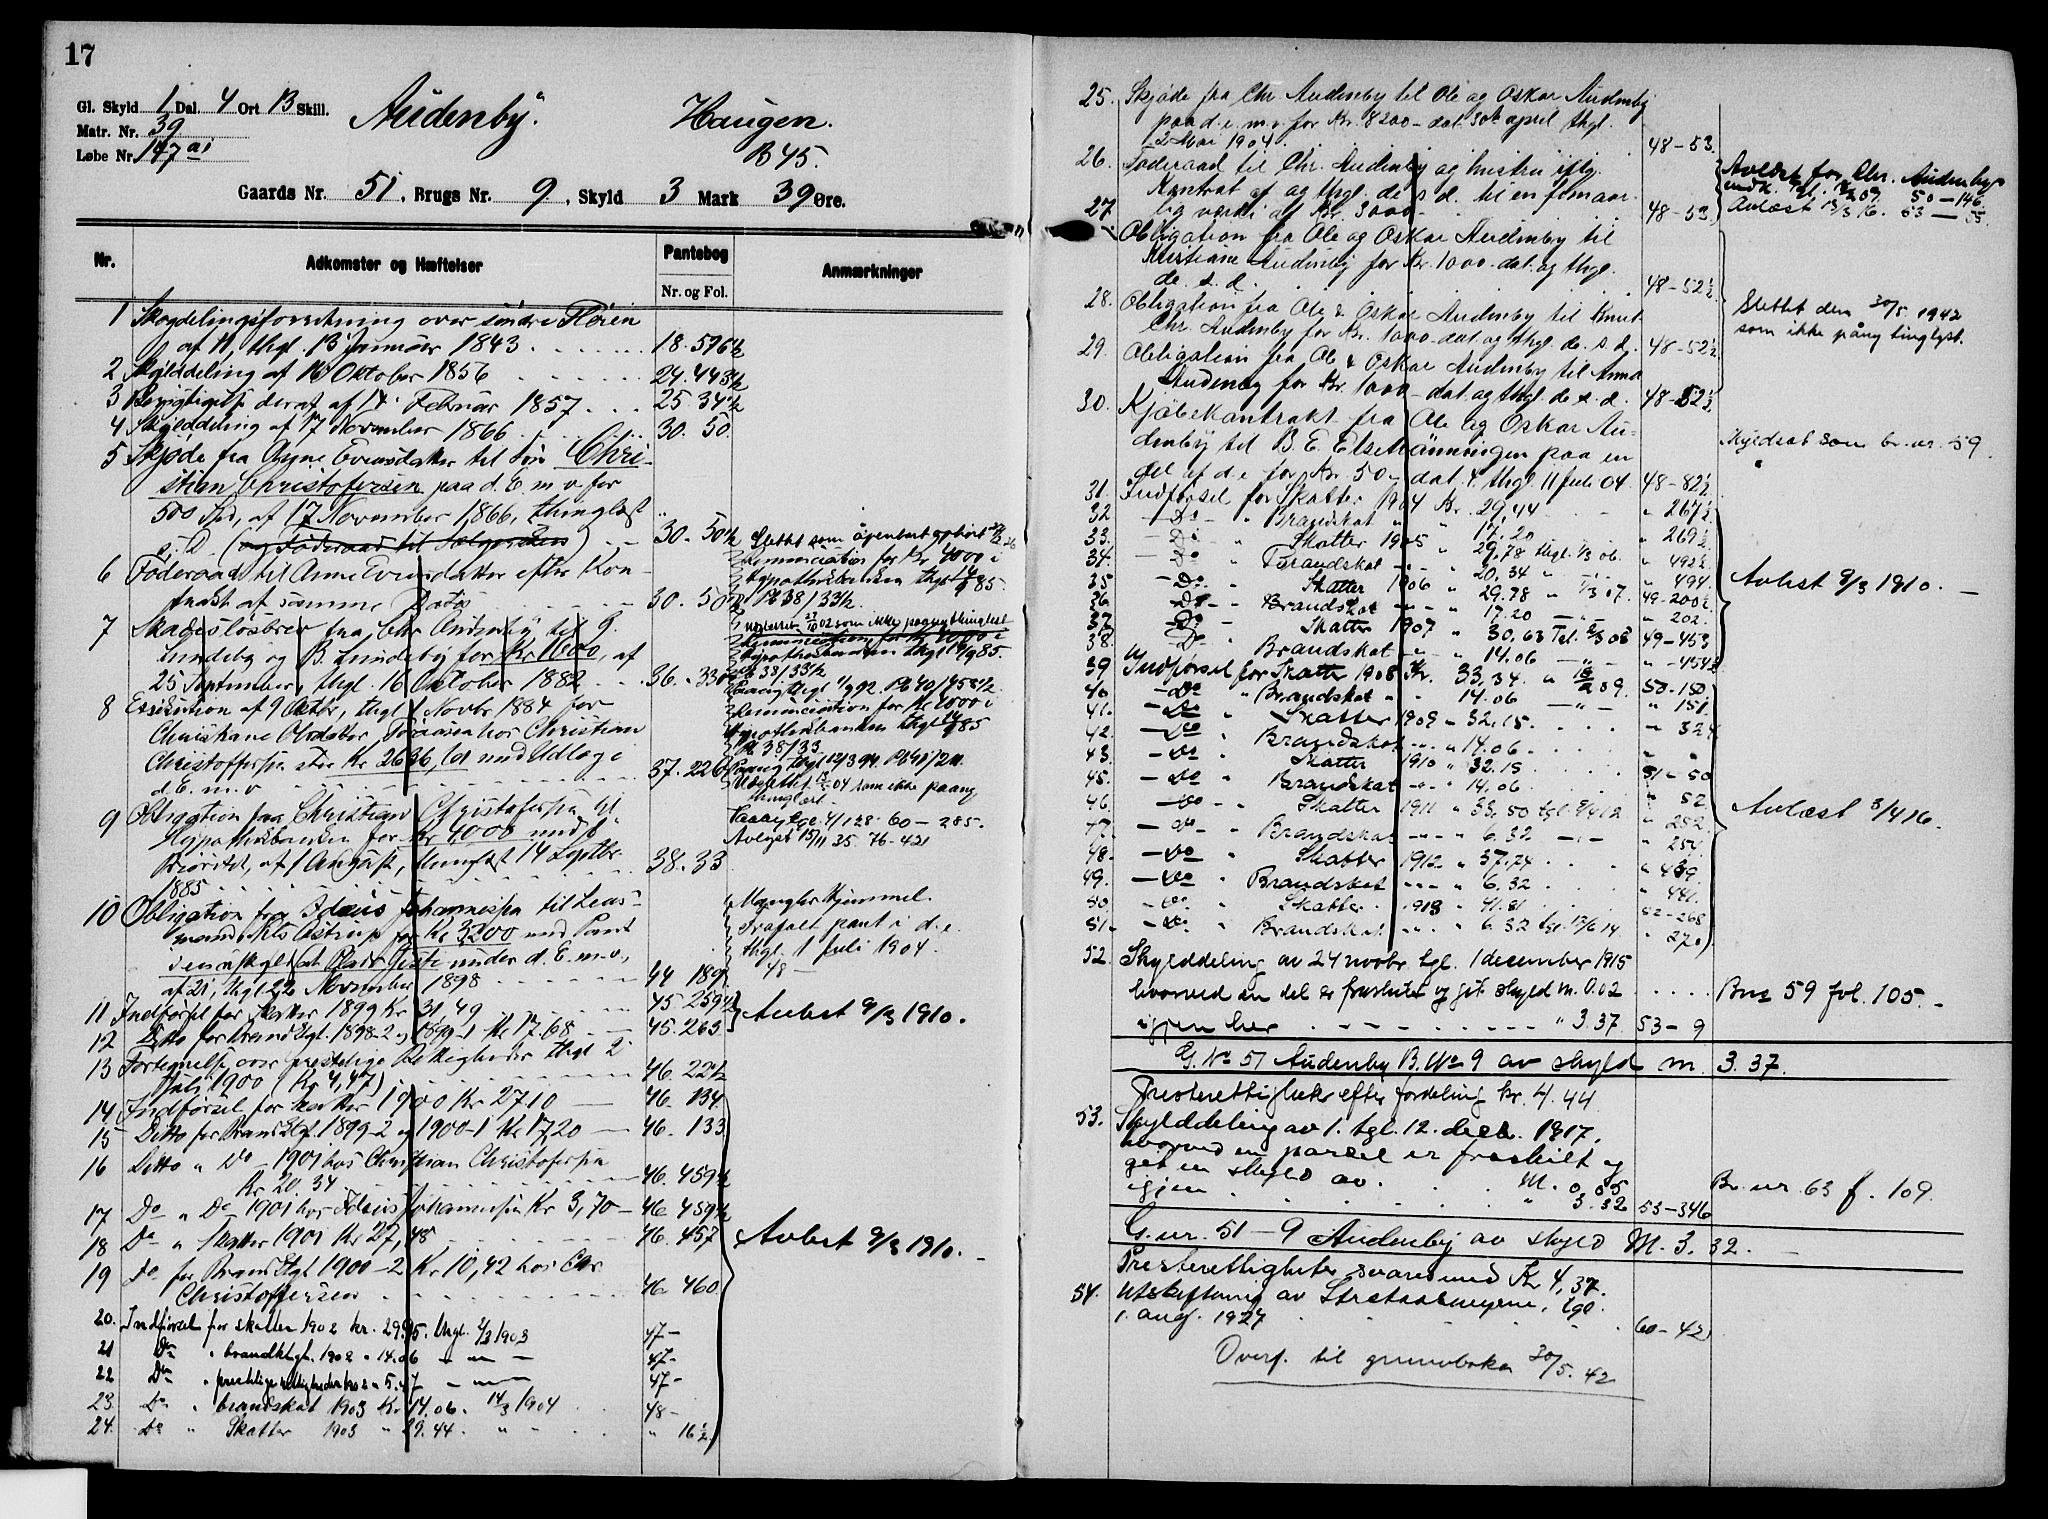 17
Gl. Skyld 1 Dal. 4 Ort 13 Skill.
Matr. Nr. 39
Løbe Nr. 147 a1
Audenby. Haugen.
B 45.
Gaards Nr. 51, Brugs Nr. 9, Skyld 3 Mark 39 Øre.
Nr. Adkomster og Hæftelser Pantebog Anmærkninger
Nr. og Fol.
1 Skogdelingsforretning over søndre
af 11, thgl. 13 Januar 1843 18. 576½
2 Skylddeling af 16 Oktober 1856 24. 443½
3 deraf af 17 Februar 1857 25. 34½
4 Skylddeling af 17 November 1866 30. 50.
5 Skjøde fra Evensdatter til Søn Chri-
stian Christofersen paa d. E. m. v. for
500 Spd, af 17 November 1866, thinglæst
s. D. (og Føderaad til 30. 50½
6 Føderaad til Anne Evensdatter efter Kon-
trakt af samme Dato 30. 50
7 Skadesløsbrev fra Chr Audenby til G.
Lundeby og B. Lundeby for Kr 1600, af
25 September, thgl. 16 Oktober 1882 36. 330
8 Exekution af 9 Oktbr, thgl 1 Novbr 1884 for
Christiane Olsdatter hos Christian
Christoffersen stor Kr 2636, med Udlæg i
d. E. m. v 37. 226
9 Obligation fra Christian Christofersen til
Hypothekbanken for Kr 4000 mod 1ste
Prioritet, af 1 August, thinglæst 14 Septbr
1885 38. 33
10 Obligation fra Johannesen til Lens-
mand Nils Astrup for Kr 3200 med Pant
under d. E. m. v.,
af 21, thgl. 22 November 1898 44 189
11 Indførsel for Skatter 1899 Kr 31,49 45. 259½
12 Ditto for Brandktgt. 1898-2 og 1899-1 Kr 17,68 45. 263
13 Fortegnelse over prestelige Rettigheder thgl 2
Juli 1900 (Kr 4,47) 46. 22½
14 Indførsel for skatter 1900 Kr 27 10 46. 134.
15 Ditto for Brandktgt. 1899-2 og 1900-1 Kr 17,20 46. 133
16 Ditto " Do 1901 hos Christian Christofersen
Kr 20 34 46. 459½
17 Do " Do 1901 hos Johannesen Kr 3,70 46. 459½
18 Do " Skatter 1901 Kr 27,48 46. 457
19 Do for Brandktgt 1900-2 Kr 10,42 hos Chr
Christoffersen 46. 460
20. Indførsel for skatter 1902 kr. 29.95. thgl. 4/3 1903 47-
21 Do " brandktgt. 1902 " 14.06 47-
22 Do " prestelige rettigheder 1902 " 5.47 47-
23. Do " brandskat 1903 Kr 14.06. 14/3 1904 48-
24. Do " Skatter 1903 " 29.44. " " " 16½
Slettet som åpenbart ophørt
Renunciation for Kr 4000 i
Hypothekbanken thgl 85.
Pb 38/33½
02 som ikke paany thinglæst
Renunciation for Kr 4000 i
Hypothekbanken thgl 85.
Pb 38/33½
Paany thgl 1/9 92. Pb 40/458½.
Renunciation for Kr 4000 i
Hypothekbanken thgl 85
Pb 38/33.
Paany thgl 12/3 94. Pb 41/211.
Udslettet 04 som ikke paany
thinglæst.
Paany tgl. 4/1 28- 60 - 285.
Avlyst 15/11 35 76-421
Mangler Hjemmel.
Frafalt pant i d. e.
thgl. 1 juli 1904.
48 -
Avlæst 9/3 1910.
Avlæst 9/3 1910.
25. Skjøde fra Chr Audenby til Ole og Oskar Audenby
paa d. e. m. v. for kr. 8200 - dat. 30te april thgl.
2 Mai 1904. 48-53.
26. Føderaad til Chr. Audenby og hustru iflg.
Kontrat af og thgl. de. s. d. til en femaar-
lig værdi af kr. 3000 48-53
27. Obligation fra Ole og Oskar Audenby til
Kristiane Audenby for kr. 1000 - dat. og thgl.
de. s. d. 48-52½
28. Obligation fra Ole & Oskar Audenby til Knut
Chr. Audenby for kr. 1000 - dat og thgl. de. s. d. 48-52½
29. Obligation fra Ole & Oskar Audenby til Anna
Audenby for kr. 1000 - dat. og thgl. de s. d. 48-52½
30. Kjøbekontrakt fra Ole og Oskar Au-
denby til B. E. Else Männingen paa en
del af d. e. for Kr. 50 - dat. 4. thgl 11 juli 04. 48-82½
31. Indførsel for Skatter 1904 Kr. 29,44 " 267½
32 Do " Brandskat " " 17.20 " 269½
33. Do " Skatter 1905 " 29.78 thgl. /3 06. " 492½
34. Do " Brandskat " 20.34 " 494.
35 Do " Skatter 1906 " 29.78 " /3 07. 49-200½
36 Do " Brandskat " 17.20 " 202.
37 Do " Skatter 1907 " 30,63 Tgl. /3 08 49-453
38. Do Brandskat " 14.06 " -454½
39 Indførsel for Skatter 1908 Kr. 33.34. " 09. 50-150
40 Do " Brandskat " " 14.06 " 151
41. Do " Skatter 1909 " 32.15. " 324
42. Do " Brandskat " " 14.06 " "
43. Do " Skatter 1910 " 32.15 51-50
45. Do " Brandskat " " 14.06. " 52
46. Do " Skatter 1911 " 33,50 tgl 9/4 12 " 252
47. Do " Brandskat " " 6.32 " 254
48. Do " Skatter 1912 " 37.74 " 439
49. Do " Brandskat " " 6.32 " 441.
50 Do " Skatter 1913 " 41.81 52-268
51. Do " Brandskat " " 6.32 tgl. 12/6 14 " 270
52. Skylddeling av 24 novbr. tgl. 1 december 1915
hvorved en del er fraskilt og git skyld m. 0.02
igjen her " 3.37 53-9
G. No 51 Audenby B. No 9 av skyld m. 3.37.
Presterettigheter efter fordeling kr. 4.44.
53. Skylddeling av 1. tgl. 12. decb. 1917,
hvorved en parsel er fraskilt og
git en skyld av M. 0.05
igjen " 3.32 53-346
G. nr. 51 - 9 Audenby av skyld M. 3.32.
Presterettigheter svares med Kr 4,37.
54. Utskiftning av tgl.
1. aug. 1927 60-42
Overf. til grunnboka 30/5. 42
Avlæst for Chr. Audenby
09. 50-146.
Avlæst 13/3 16. 53
Slettet den 30/5. 1942
som ikke påny tinglyst.
Skyldsat som br. nr. 59.
Avlæst 9/3 1910.
Avlæst 3/4 16.
Bnr 59 fol. 105.
Br. nr. 63 f. 109.